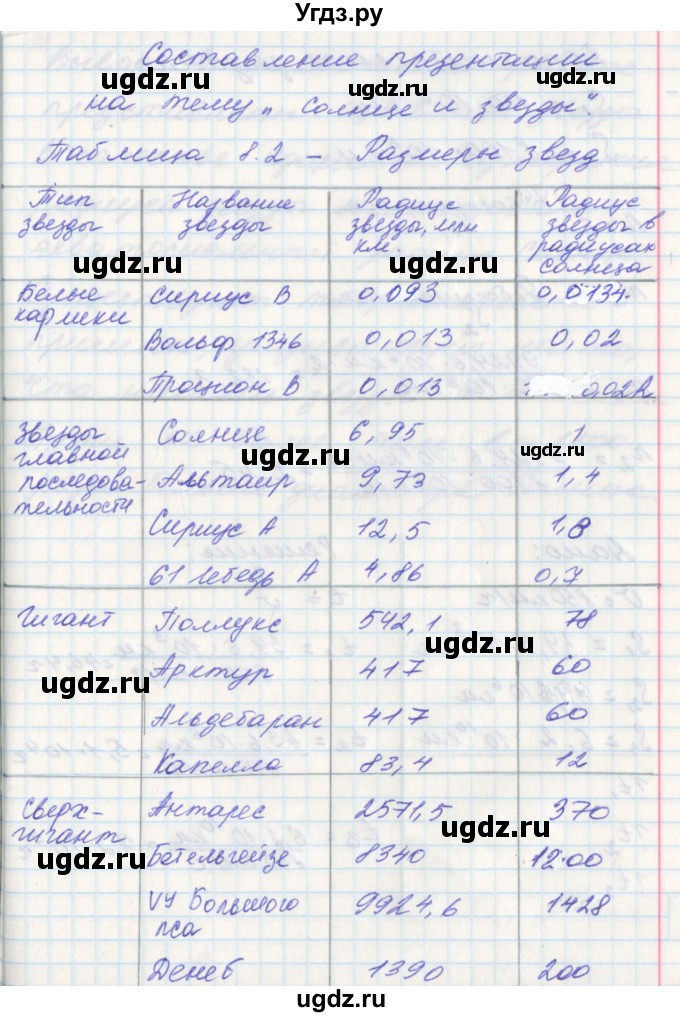 Угдз.ру
Составление презентации
на тему „Солнце и звезды".
Таблица 8.2 – Размеры звезд
Тип звезды | Название звезды | Радиус звезды, млн км. | Радиус звезды в радиусах солнца
Белые карлики | Сириус В | 0,093 | 0,0134
Вольф 1346 | 0,013 | 0,02
Процион В | 0,013 | 0,02
Звезды главной последова-тельности | Солнце | 6,95 | 1
Альтаир | 9,73 | 1,4
Сириус А | 12,5 | 1,8
61 Лебедь А | 4,86 | 0,7
Гигант | Поллукс | 542,1 | 78
Арктур | 417 | 60
Альдебаран | 417 | 60
Капелла | 83,4 | 12
Сверх-гигант | Антарес | 2571,5 | 370
Бетельгейзе | 8340 | 1200
VY Большого пса | 9924,6 | 1428
Денеб | 1390 | 200
ugdz.ru
ugdz.ru
ugdz.ru
ugdz.ru
ugdz.ru
ugdz.ru
ugdz.ru
ugdz.ru
ugdz.ru
ugdz.ru
ugdz.ru
ugdz.ru
ugdz.ru
ugdz.ru